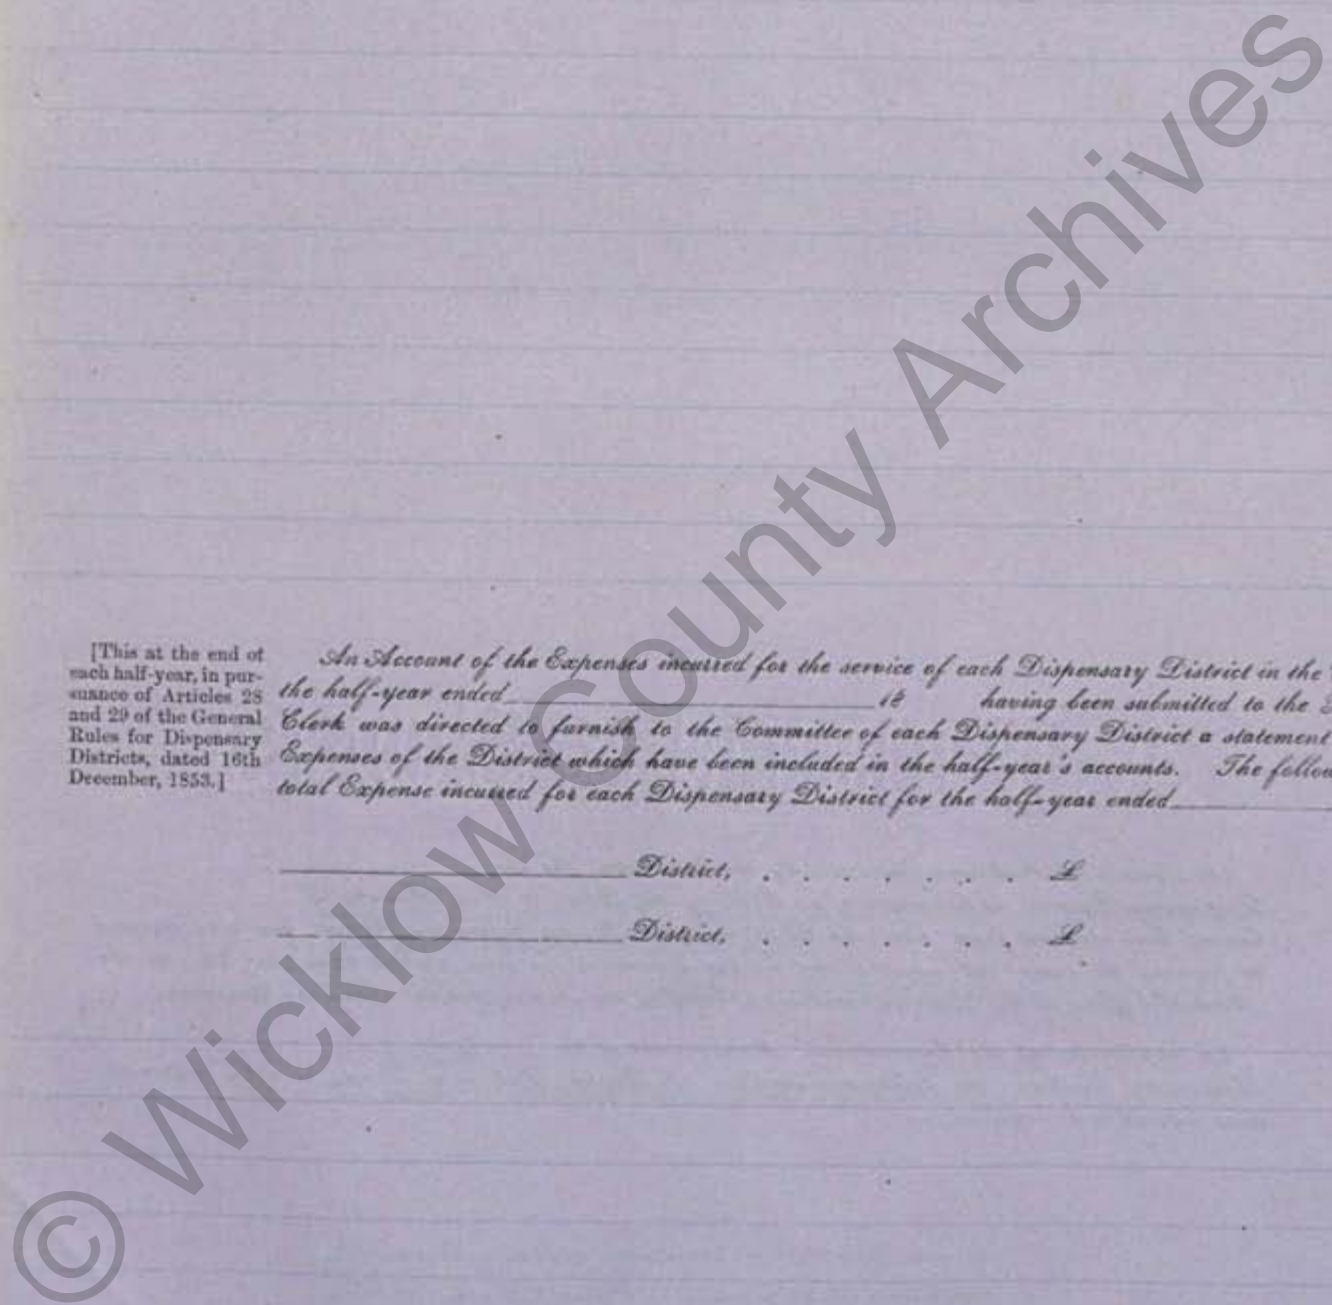 [This at the end of
each half-year, in pur-
suance of Articles 28
and 29 of the General
Rules for Dispensary
Districts, dated 16th
December, 1853.]
An Account of the Expenses incurred for the service of each Dispensary District in the
the half-year ended 18 having been submitted to the
Clerk was directed to furnish to the Committee of each Dispensary District a statement
Expenses of the District which have been included in the half-year's accounts. The follow
total Expense incurred for each Dispensary District for the half-year ended
District, . . . . . . . £
District, . . . . . . . £
© Wicklow County Archives